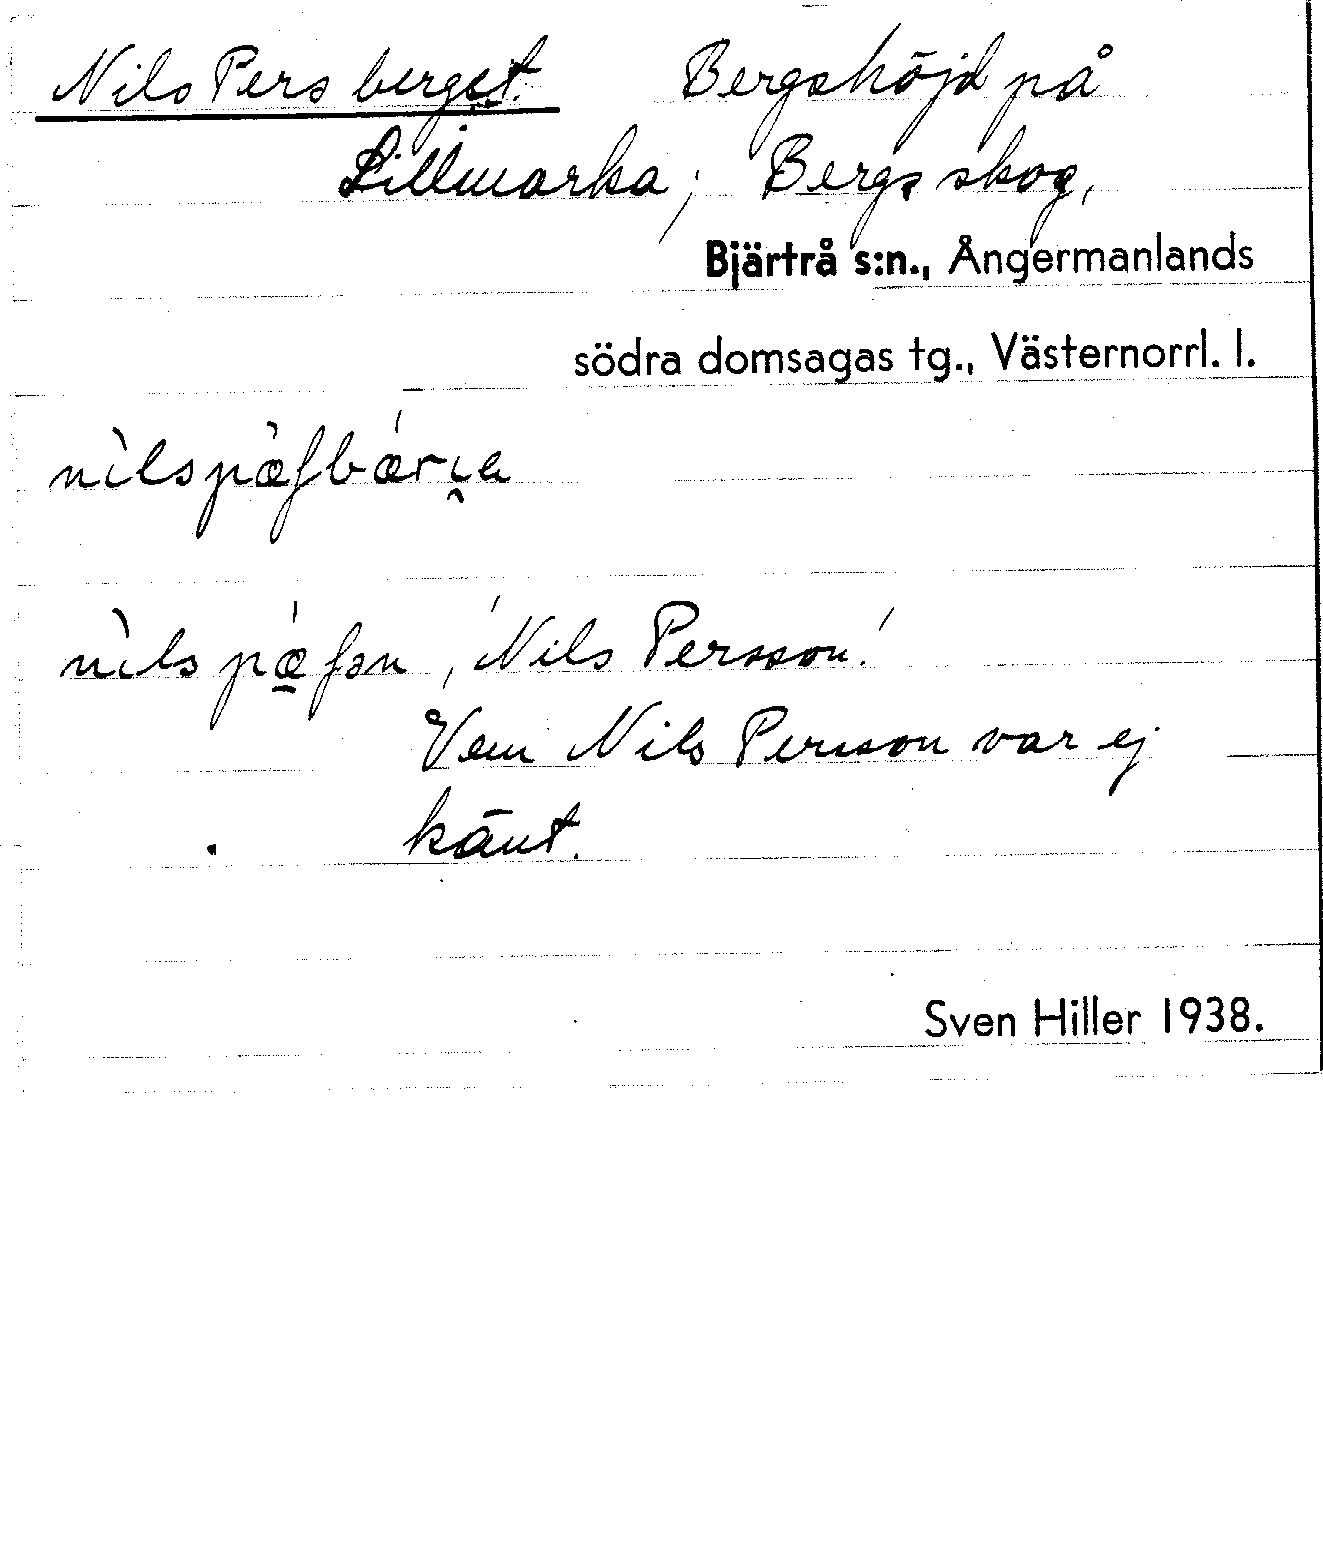 Nils Pers berget. Bergshöjd på
Lillmarka; Bergs skog,
Bjärtrå s:n., Ångermanlands
södra domsagas tg., Västernorrl. l.
nìlspæ̀ʃbǽri̯a
nìls pæ̠̍ʃən, 'Nils Persson.'
Vem Nils Persson var ej
känt.
Sven Hiller 1938.